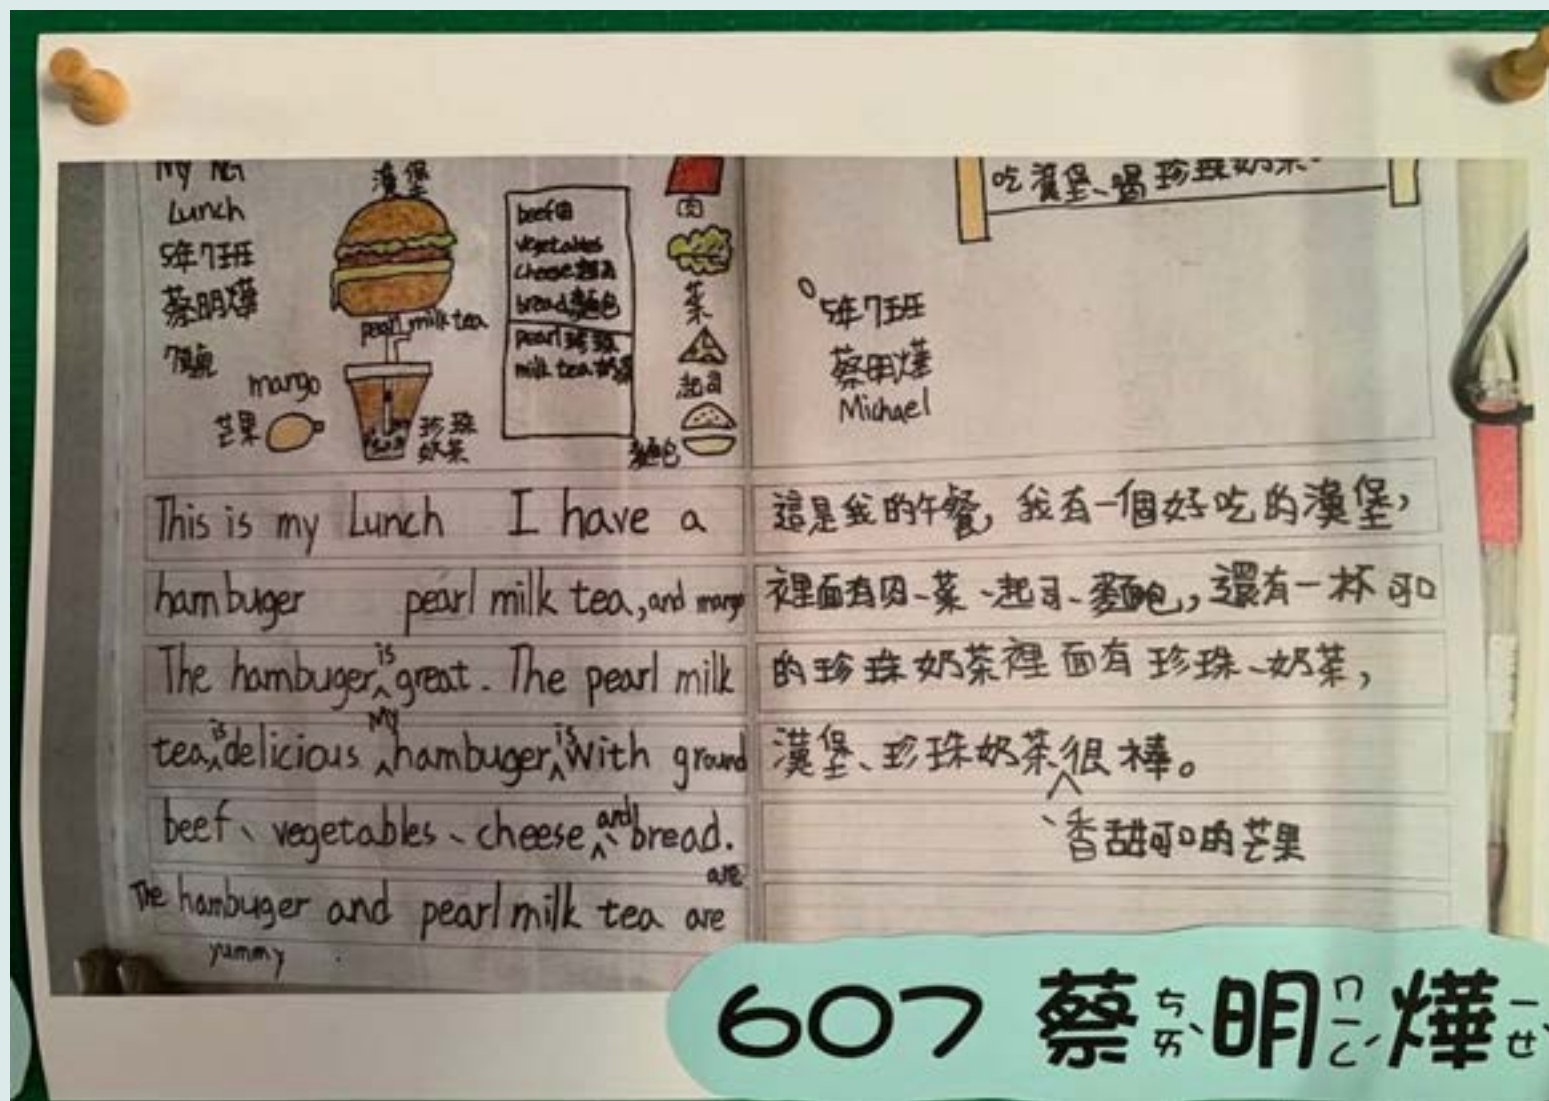 Lunch
5年7班
蔡明燁
7號
漢堡
pearl milk tea
mango
芒果
珍珠
奶茶
beef肉
vegetables
cheese起司
bread麵包
pearl珍珠
milk tea奶茶
肉
菜
起司
麵包
吃漢堡、喝珍珠奶茶。
5年7班
蔡明燁
Michael
This is my Lunch I have a
hambuger pearl milk tea, and mango
The hambuger is great. The pearl milk
tea is delicious My hambuger is with ground
beef、vegetables、cheese、and bread.
are
The hambuger and pearl milk tea are
yummy
這是我的午餐，我有一個好吃的漢堡，
裡面有肉、菜、起司、麵包，還有一杯可口
的珍珠奶茶裡面有珍珠、奶茶，
漢堡、珍珠奶茶很棒。
、香甜可口的芒果
607 蔡ㄘㄞˋ明ㄇㄧㄥˊ燁ㄧㄝˋ